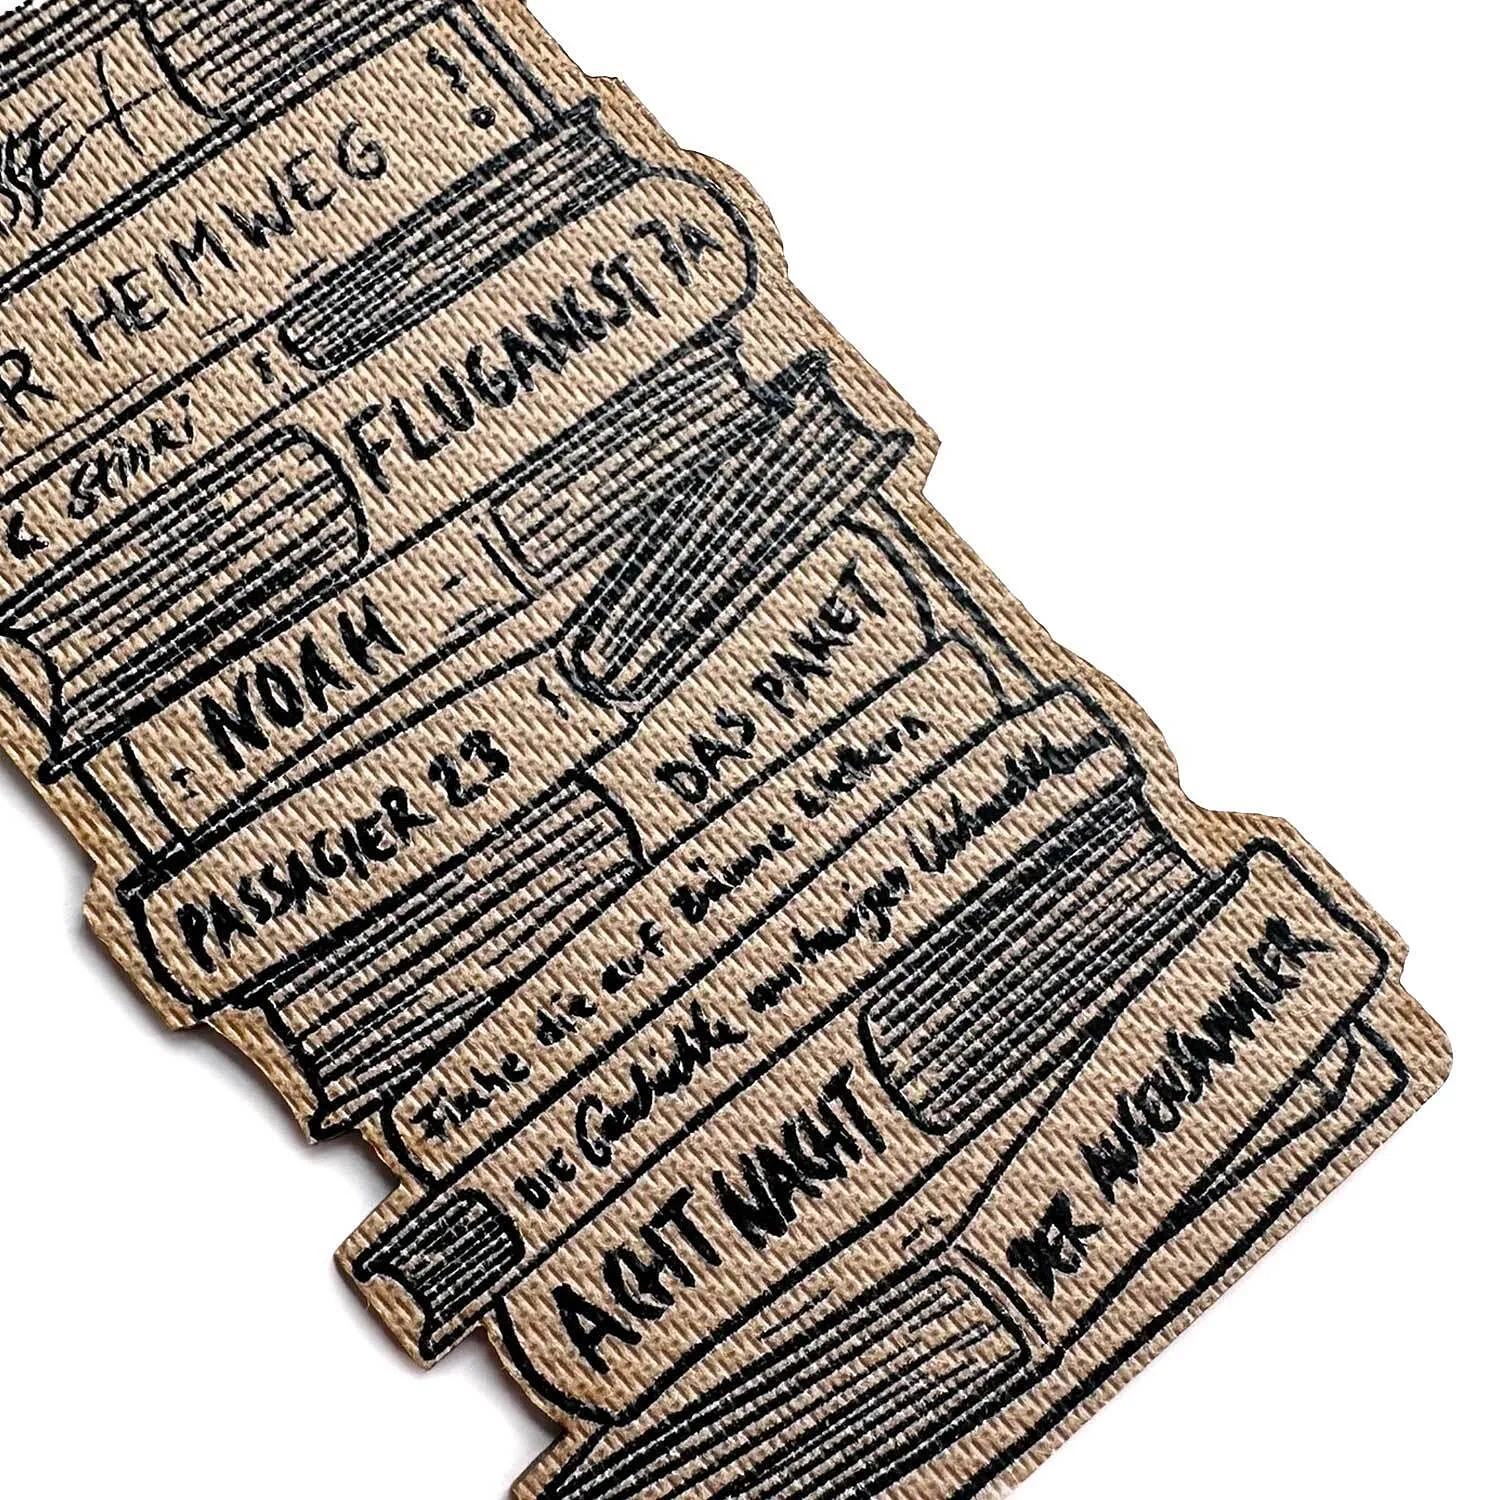 SSE
R HEIMWEG
FLUGANGST 7A
NOAH
PASSAGIER 23
DAS PAKET
Fische die auf Bäume klettern
DIE Geschichte
ACHT NACHT
DER AUGENSAMMLER